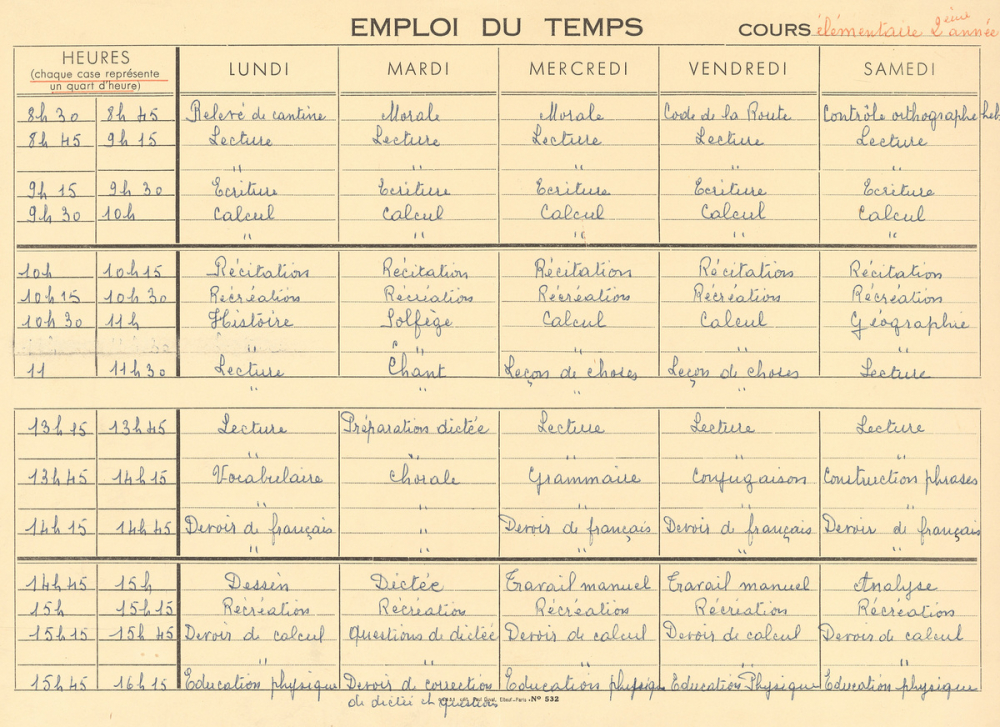 EMPLOI DU TEMPS COURS élémentaire 2ème année
HEURES
(chaque case représente
un quart d'heure)
LUNDI MARDI MERCREDI VENDREDI SAMEDI
8h 30 8h 45 Relevé de cantine Morale Morale Code de la Route Contrôle orthographe heb
8h 45 9h 15 Lecture Lecture Lecture Lecture Lecture
" " " " "
9h 15 9h 30 Ecriture Ecriture Ecriture Ecriture Ecriture
9h 30 10h Calcul Calcul Calcul Calcul Calcul
" " " " "
10h 10h 15 Récitation Récitation Récitation Récitation Récitation
10h 15 10h 30 Récréation Récréation Récréation Récréation Récréation
10h 30 11h Histoire Solfège Calcul Calcul Géographie
" " " " "
11 11h 30 Lecture Chant Leçon de choses Leçon de choses Lecture
" " "
13h 15 13h 45 Lecture Préparation dictée Lecture Lecture Lecture
" " " " "
13h 45 14h 15 Vocabulaire Chorale Grammaire Conjugaison Construction phrases
" " " " "
14h 15 14h 45 Devoir de français " Devoir de français Devoir de français Devoir de français
" " " " "
14h 45 15h Dessin Dictée Travail manuel Travail manuel Analyse
15h 15h 15 Récréation Récréation Récréation Récréation Récréation
15h 15 15h 45 Devoir de calcul Questions de dictée Devoir de calcul Devoir de calcul Devoir de calcul
" " " " "
15h 45 16h 15 Education physique Devoir de correction Education physique Education Physique Education physique
de dictée et questions N° 532